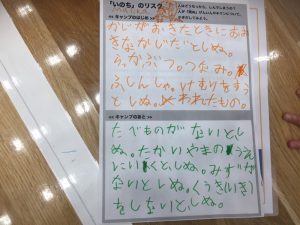 「いのち」のリスク
<< キャンプのはじめ >>
かじがおきたときにおお
きなかじだとしぬ。
らかぶつつなみ。
ふしんしゃ。けむりをすう
としぬ。われたもの。
<< キャンプのあと >>
たべものがないとし
ぬ。たかいやまのうえ
にいくとしぬ。みずが
ないとしぬ。くうき(いき)
をしないとしぬ。